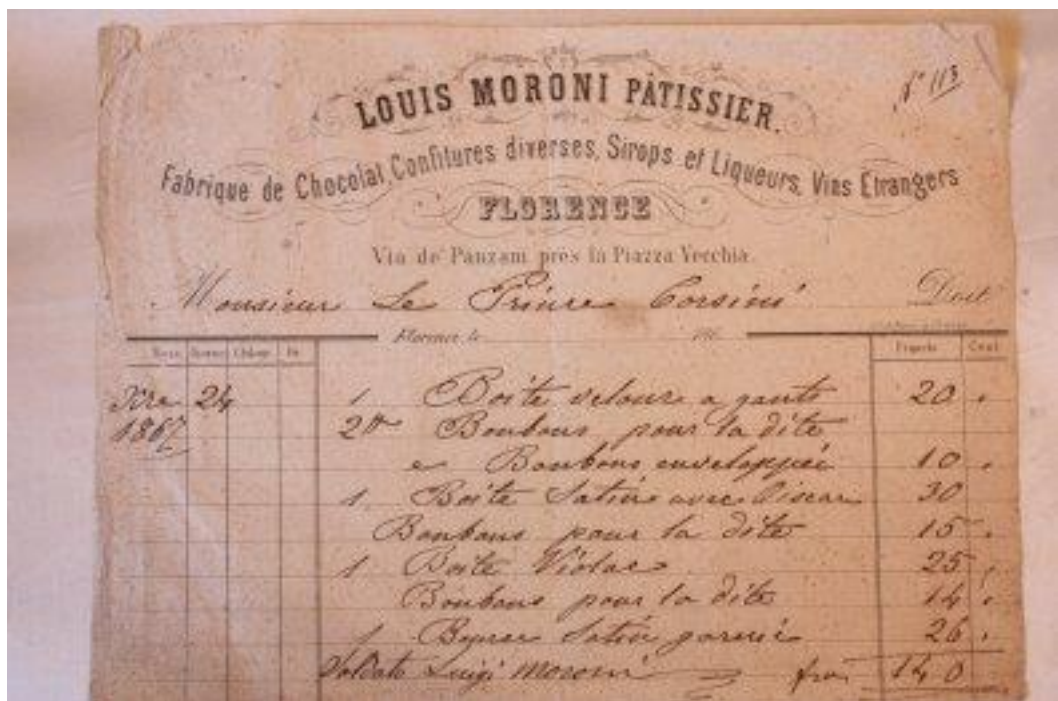 N° 113
LOUIS MORONI PÂTISSIER.
Fabrique de Chocolat, Confitures diverses, Sirops et Liqueurs, Vins Etrangers
FLORENCE
Via de' Panzani près la Piazza Vecchia.
Monsieur Le Prince Corsini Doit
Florence le 186
Francs Cent.
Xre 24 1 Boite velours a gants 20
1867 2 Bonbons pour la dite
e Bonbons enveloppée 10
1 Boite Satin avec 30
Bonbons pour la dite 15
1 Boite 25
Bonbons pour la dite 14
1 Satin garnie 26
Saldato Luigi Moroni 140